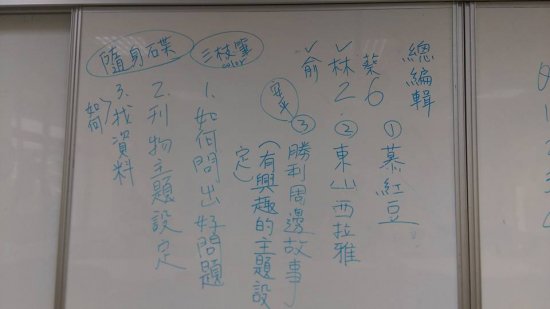 總編輯
蔡 6 ①慕紅豆
✓林 2. ②東山西拉雅
✓俞 ③勝利周邊故事
(有興趣的主題設定)
三枝筆
color
1. 如何問出好問題
隨身碟
2. 刊物主題設定
3. 找資料
如何